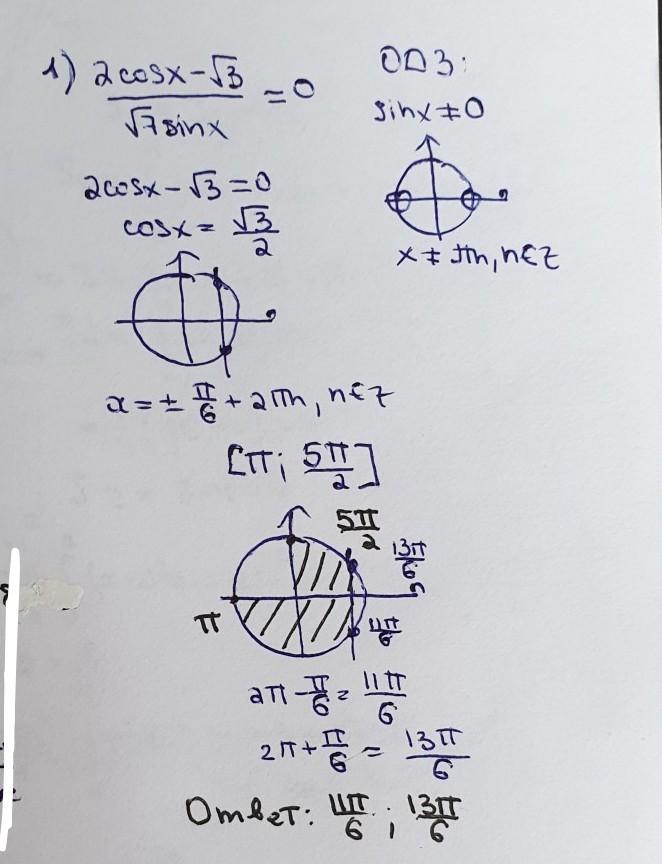 1) (2cosx-√3)/(√7sinx) = 0
ОДЗ:
sinx≠0
x ≠ πn, n∈Z
2cosx-√3=0
cosx = √3/2
x = ± π/6 + 2πn, n∈Z
[π; 5π/2]
5π/2
13π/6
π
11π/6
2π - π/6 = 11π/6
2π + π/6 = 13π/6
Ответ: 11π/6 ; 13π/6